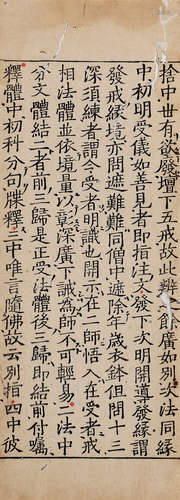 捨中世有欲廢壇下五戒故此辯餘廣如別次法同緣
中初明受儀如善見者即指注文發下次明開導發緣謂
發戒緣境亦問遮難難同僧中遮除年歲衣鉢但問十三
深須練者謂令受者明識也開示在二師悟入在受者戒
相法體並依境量以彰深廣下誡為師不可輕易二法中
分文體結二者前三歸是正受法體後三歸即結前付囑
釋體中初科分句牒釋二中唯言隨佛故云別指四中彼